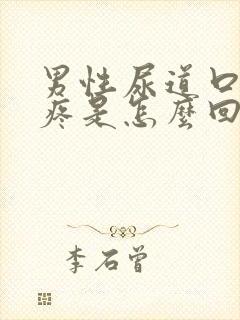 男性尿道口
疼是怎麽回
李石曾